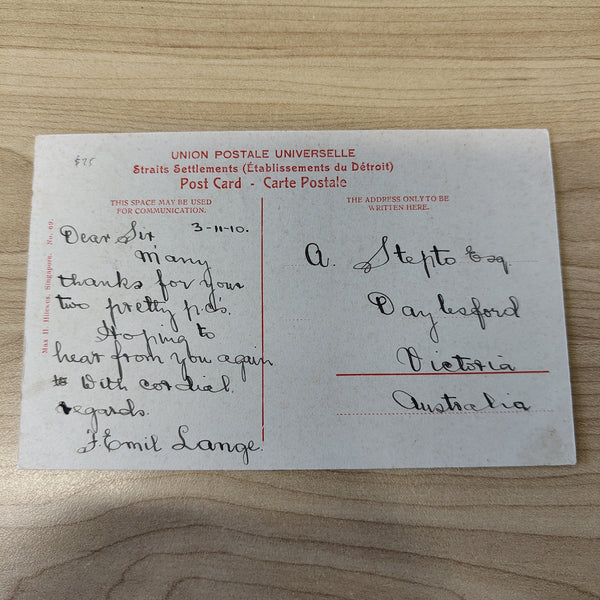 $25
UNION POSTALE UNIVERSELLE
Straits Settlements (Établissements du Détroit)
Post Card - Carte Postale
THIS SPACE MAY BE USED
FOR COMMUNICATION.
THE ADDRESS ONLY TO BE
WRITTEN HERE.
Max H. Hilckes, Singapore. No. 69.
3-11-10.
Dear Sir
Many
thanks for your
two pretty p.c's.
Hoping to
hear from you again
With cordial
regards.
F. Emil Lange.
A. Stepto Esq.
Daylesford
Victoria
Australia